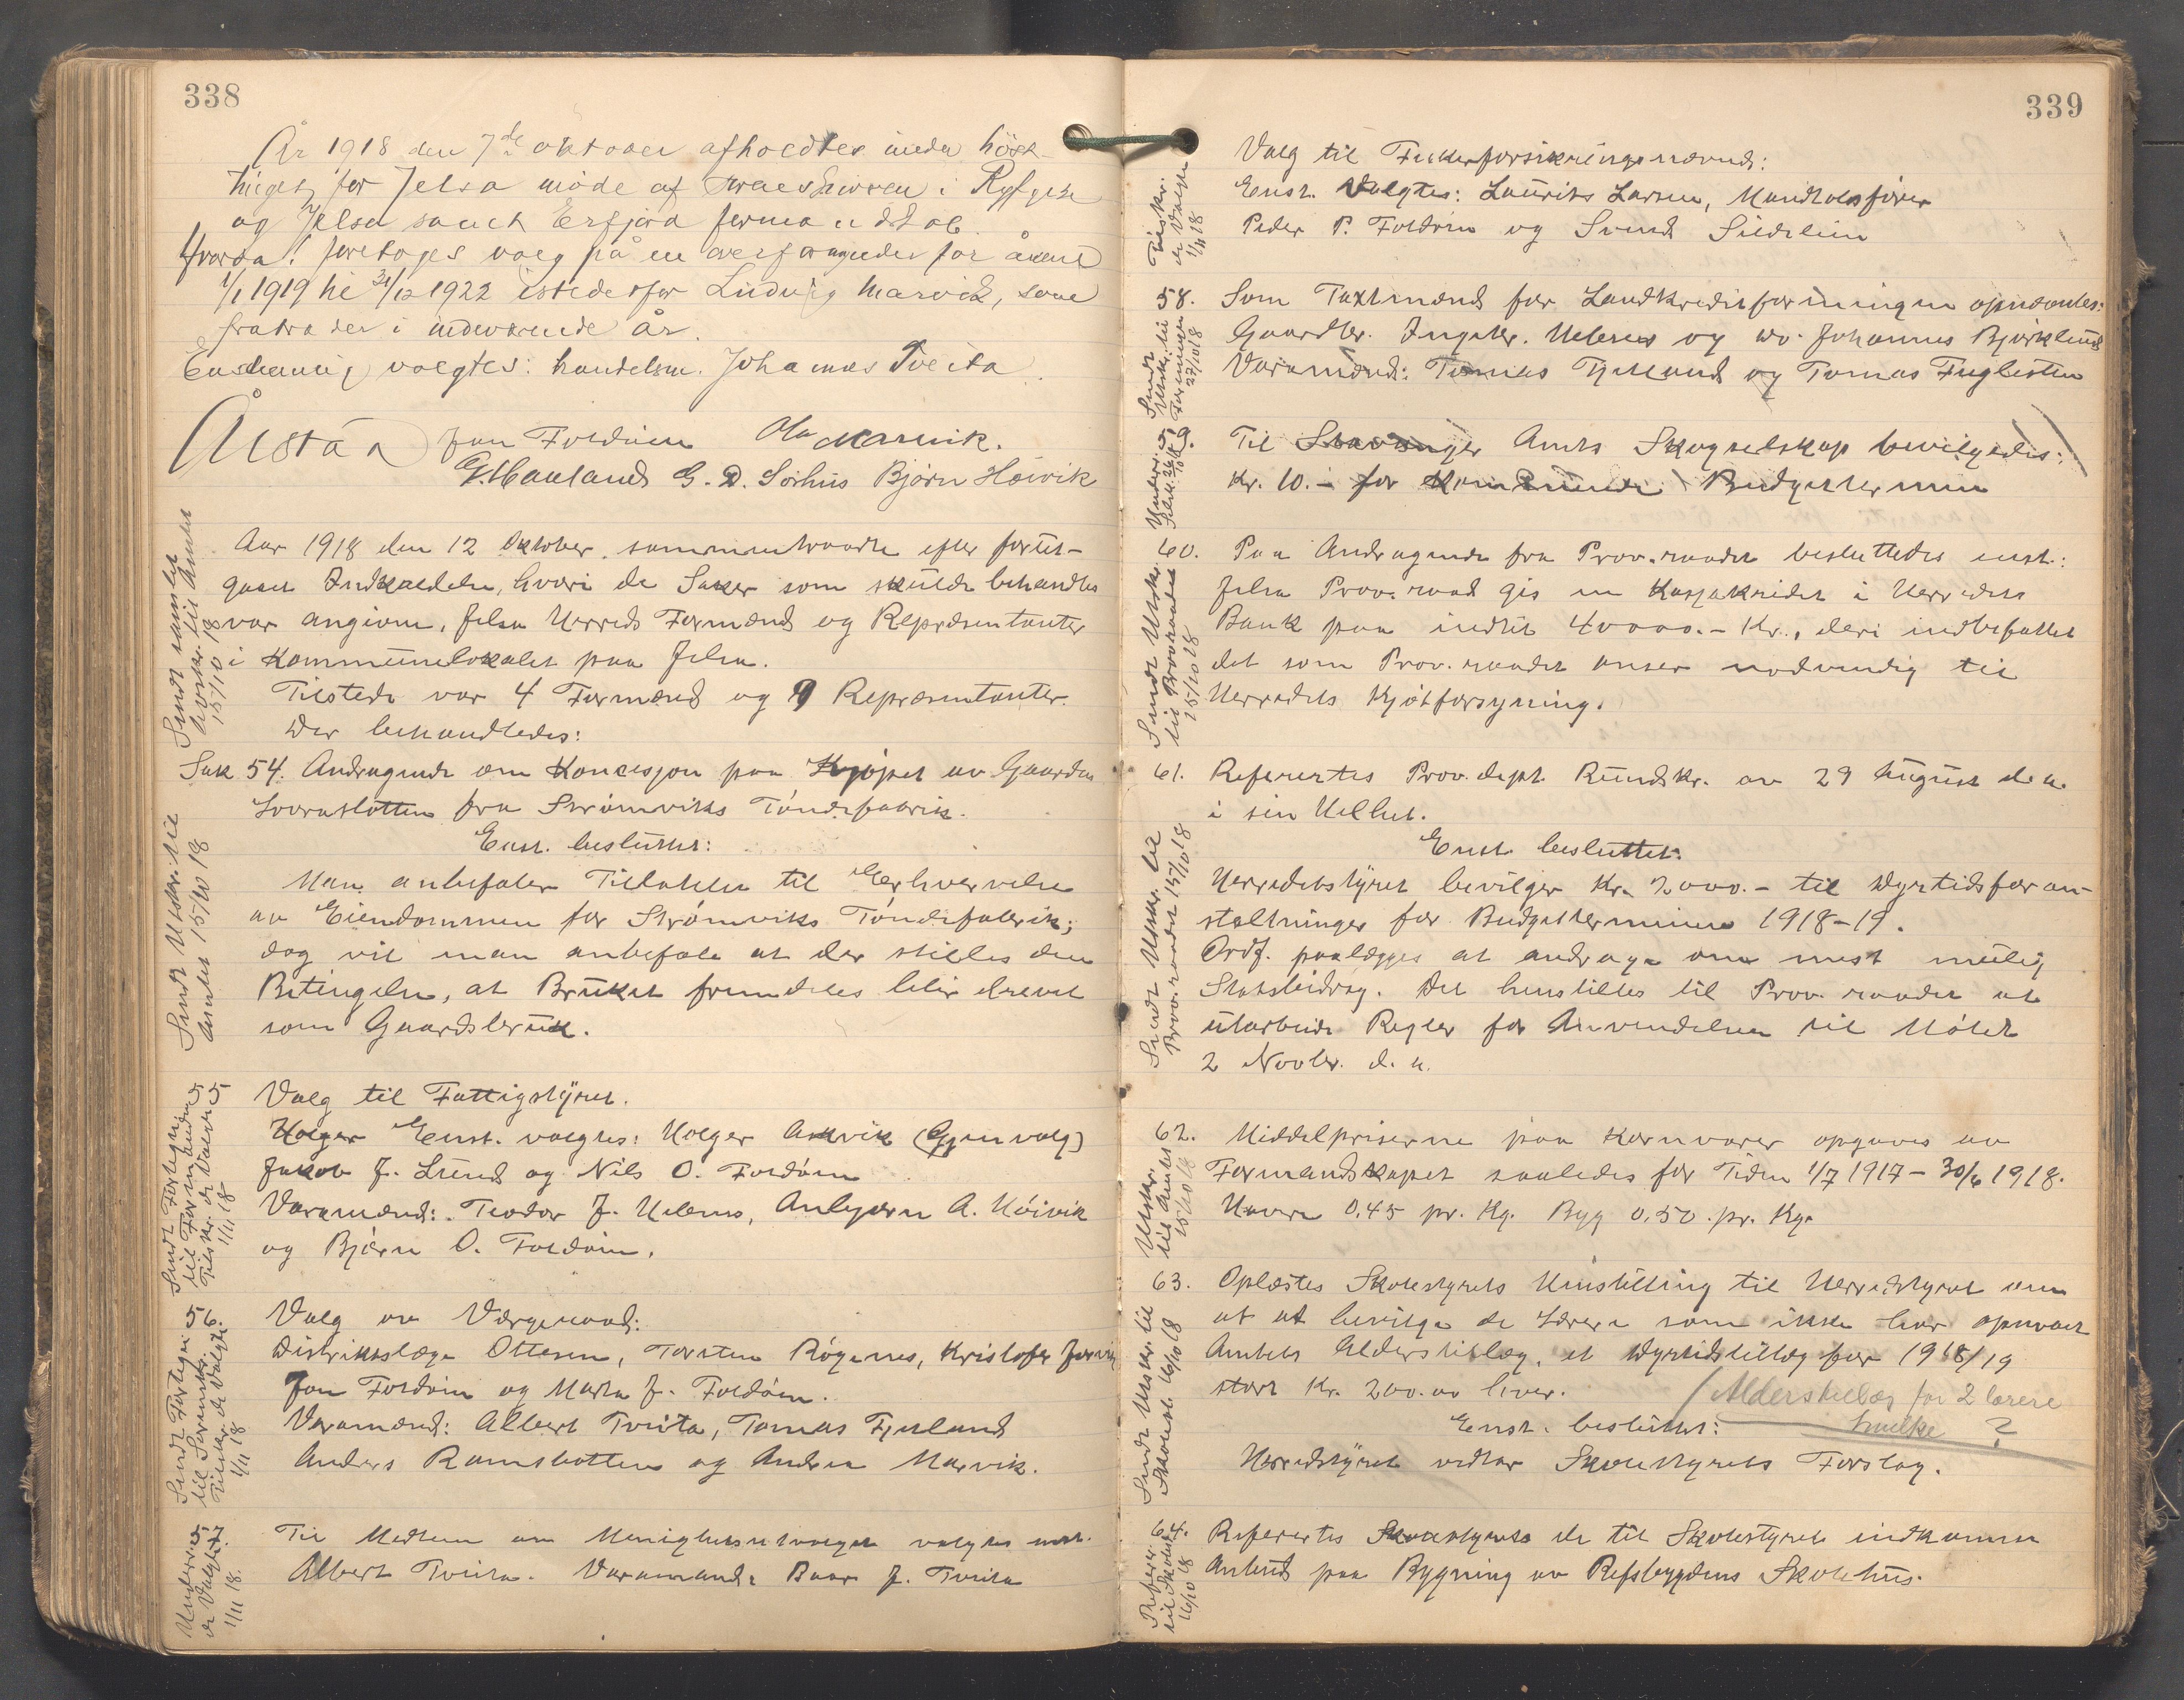 338
År 1918 den 7de oktober afholdtes under höst-
tinget for Jelsa möde af i Ryfylke
og Jelsa samt Erfjord formandskab.
Hvorda! foretoges valg på en overformynder for årene
1/1 1919 til 31/12 1922 istedetfor Ludvig Marvik, som
fratræder i indeværende år.
Enstemmig valgtes: handelsm. Johannes Tveita
Ålstad Jon Foldöen Ola Marvik.
G. Hauland G. D. Sörhus Björn Höivik
Aar 1918 den 12 Oktober sammentraadte efter forut-
gaaet Indkaldelse, hvori de Saker som skulde behandles
var angivne, Jelsa Herreds Formænd og Repræsentanter
i Kommunelokalet paa Jelsa.
Tilstede var 4 Formænd og 9 Repræsentanter.
Der behandledes:
Sak 54. Andragende om Koncesjon paa Kjöpet av Gaarden
fra Strömviks Töndefabrik.
Enst. besluttet:
Man anbefaler Tilladelse til Erhvervelse
av Eiendommen for Strömviks Töndefabrik;
dog vil man anbefale at der stilles den
Betingelse, at Bruket fremdeles blir drevet
som Gaardsbruk.
55 Valg til Fattigstyret.
Holger Enst. valgtes: Holger Askvik (Gjenvalg)
Jakob J. Lund og Nils O. Foldöen
Varamænd: Teodor J. Helenes, Anbjørn A. Höivik
og Björn O. Foldöen.
56. Valg av Værgeraad:
Distriktslæge Ottesen, Torsten Røgenes, Kristofer
Jon Foldöen og Marta J. Foldöen.
Varamænd: Albert Tveita, Tomas Fjelland
Anders Ramsbotten og Andrea Marvik.
57 Til Medlem av Menighetsutvalget valgtes enst.
Albert Tveita. Varamand: Baar J. Tveita
Sendt samlet
Avskr. til Amtet
15/10 18
Sendt Utskr. til
Amtet 15/10 18
Sendt Fortegn.
til Formanden
Tilskr. de Valgte
1/11 18
Sendt Fortegn.
til Sorenskr.
Tilskr. de Valgte
1/11 18
Underr.
de Valgte
1/11 18.
339
Valg til nævnd:
Enst. Valgtes: Laurits Larsen, Mandtalsfører
Peder P. Foldöen og Svend
58. Som Taxtmænd for Landkreditforeningen opnævntes:
Gaardbr. Ingebr. Helenes og do. Johannes Bjørklund
Varamænd: Tomas Fjelland og Tomas Fuglestein
59. Til Stavanger Amts Skogselskap bevilgedes:
Kr. 10.- for Kommende Budgettermin
60. Paa Andragende fra Prov. raadet besluttedes enst.:
Jelsa Prov. raad gis en Kassakredit i Herredets
Bank paa indtil 40000.- Kr., deri indbefattet
det som Prov. raadet anser nødvendig til
Herredets Kjøtforsyning.
61. Refereertes Prov. dept. Rundskr. av 29 August d. a.
i sin Helhet.
Enst. besluttet:
Herredstyret bevilger Kr. 2000.- til Dyrtidsforan-
staltninger for Budgetterminen 1918-19.
Ordf. paalægges at andrage om mest mulig
Statsbidrag. Det henstilles til Prov. raadet at
utarbeide Regler for Anvendelsen til Mötet
2 Novbr. d. a.
62. Middelpriserne paa Kornvarer opgaves av
Formandskapet saaledes for Tiden 1/7 1917 - 30/6 1918.
Havre 0,45 pr. Kg. Byg 0,50 pr. Kg.
63. Oplæstes Skolestyrets Henstilling til Herredstyret om
at at bevilge de Lærere som ikke har opnaaet
Amtets Alderstillæg, et Dyrtidstillæg for 1918/19
stort Kr. 200. av hver.
Alderstillæg for 2 lærere
hvilke ?
Enst. besluttet:
Herredstyret vedtar Skolestyrets Forslag.
64. Referertes Skolestyrets de til Skolestyret indkomne
Anbud paa Bygning av Refsbygdens Skolehus.
Tilskr.
de Valgte
1/11 18
Sendt
Utskr. til
Foreningen
22/10 18
Underr.
Selsk.
Sendt Utskr.
til Provraadet
15/10 18
Sendt Utskr. til
Prov. raadet 15/10 18
Utskr.
til Amtet
15/10 18
Sendt Utskr. til
Skolest. 16/10 18
Referer.
til Skolest.
16/10 18